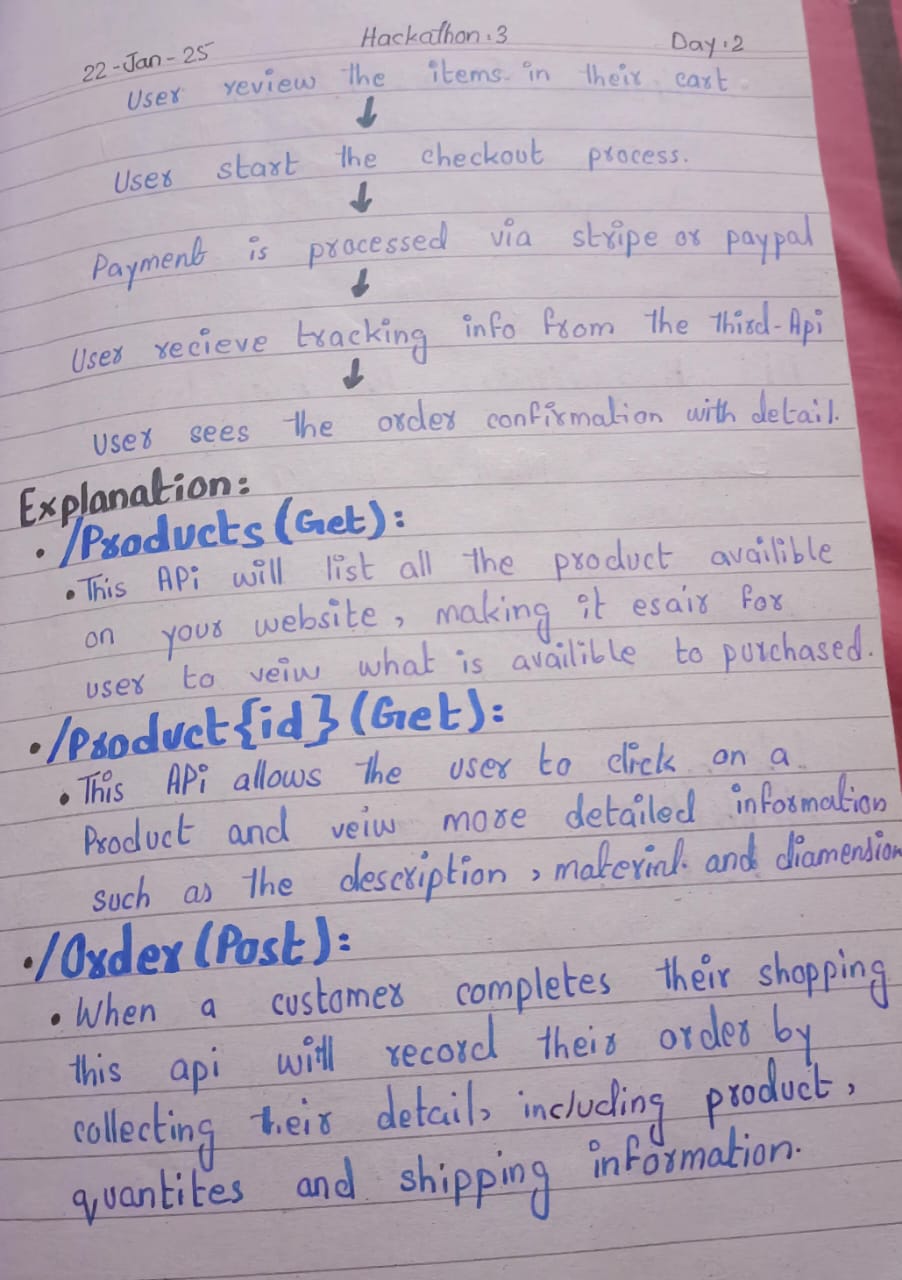 22-Jan-25 Hackathon:3 Day:2
User review the items in their cart.
↓
User start the checkout process.
↓
Payment is processed via stripe or paypal
↓
User recieve tracking info from the third-Api
↓
User sees the order confirmation with detail.
Explanation:
• /Products (Get):
• This APi will list all the product availible
on your website, making it esair for
user to veiw what is availible to purchased.
• /Product{id} (Get):
• This APi allows the user to click on a
Product and veiw more detailed information
such as the description, material. and diamension
• /Order (Post):
• When a customer completes their shopping
this api will record their order by
collecting their detail, including product,
quantites and shipping information.